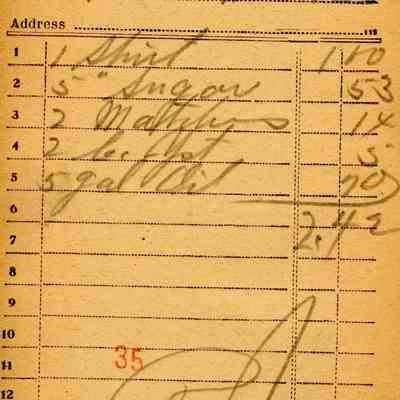 Address
1 1 Shirt 1 00
2 5 " Sugar 53
3 2 Matches 14
4 2 5
5 5 gal Oil 70
6 2.42
7
8
9
10
11 35
12